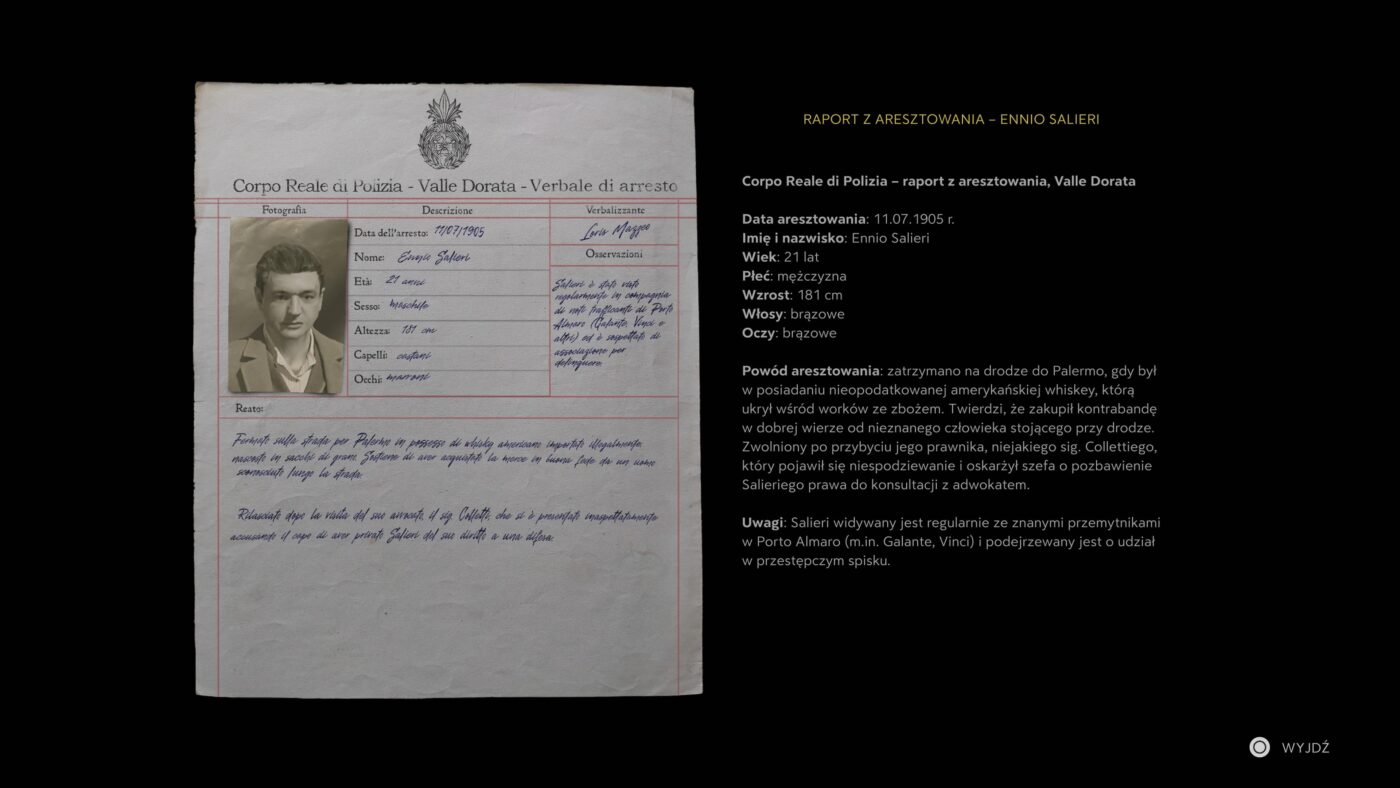 Corpo Reale di Polizia - Valle Dorata - Verbale di arresto
Fotografia
Descrizione
Verbalizzante
Data dell'arresto: 11/07/1905
Nome: Ennio Salieri
Età: 21 anni
Sesso: maschile
Altezza: 181 cm
Capelli: castani
Occhi: marroni
Loris Mazzeo
Osservazioni
Salieri è stato visto
regolarmente in compagnia
di noti trafficanti di Porto
Almaro (Galante, Vinci e
altri) ed è sospettato di
associazione per
delinquere.
Reato:
Fermato sulla strada per Palermo in possesso di whisky americano importato illegalmente,
nascosto in sacchi di grano. Sostiene di aver acquistato la merce in buona fede da un uomo
sconosciuto lungo la strada.
Rilasciato dopo la visita del suo avvocato, il sig. Colletti, che si è presentato inaspettatamente
accusando il capo di aver privato Salieri del suo diritto a una difesa.
RAPORT Z ARESZTOWANIA – ENNIO SALIERI
Corpo Reale di Polizia – raport z aresztowania, Valle Dorata
Data aresztowania: 11.07.1905 r.
Imię i nazwisko: Ennio Salieri
Wiek: 21 lat
Płeć: mężczyzna
Wzrost: 181 cm
Włosy: brązowe
Oczy: brązowe
Powód aresztowania: zatrzymano na drodze do Palermo, gdy był
w posiadaniu nieopodatkowanej amerykańskiej whiskey, którą
ukrył wśród worków ze zbożem. Twierdzi, że zakupił kontrabandę
w dobrej wierze od nieznanego człowieka stojącego przy drodze.
Zwolniony po przybyciu jego prawnika, niejakiego sig. Collettiego,
który pojawił się niespodziewanie i oskarżył szefa o pozbawienie
Salieriego prawa do konsultacji z adwokatem.
Uwagi: Salieri widywany jest regularnie ze znanymi przemytnikami
w Porto Almaro (m.in. Galante, Vinci) i podejrzewany jest o udział
w przestępczym spisku.
WYJDŹ